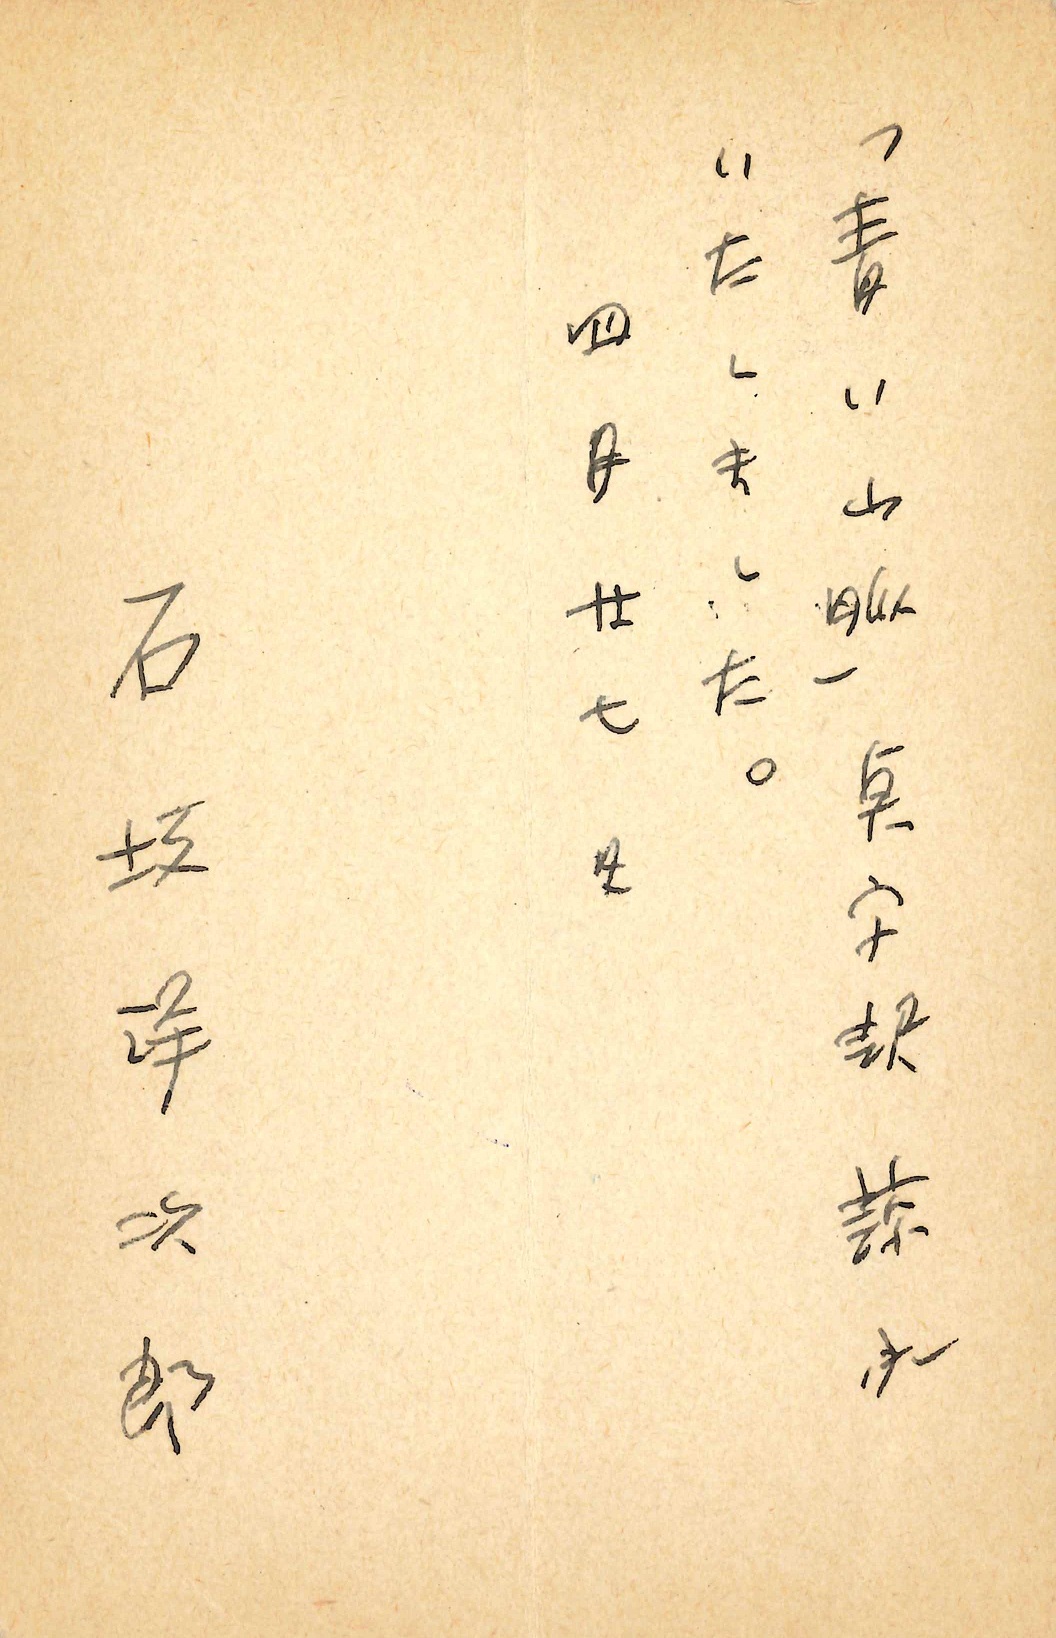 「青い山脈」点字訳諒承
いたしました。
四月廿七日
石坂洋次郎